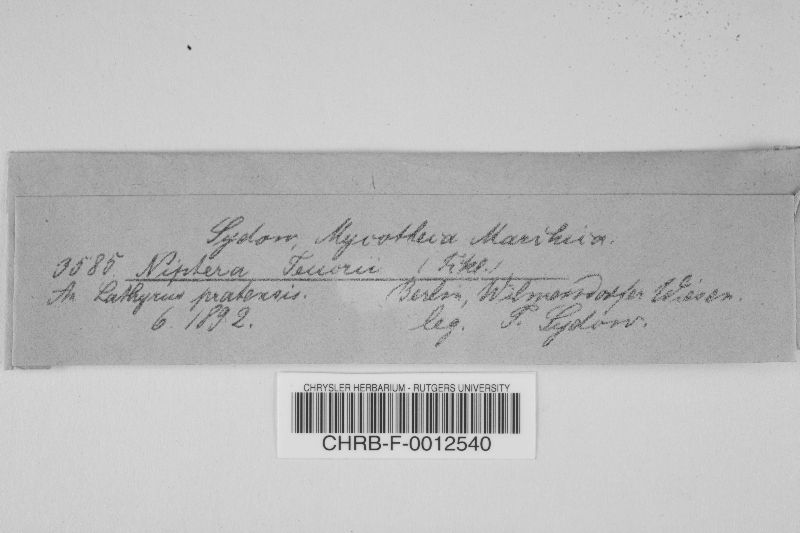 Sydow, Mycotheca Marchica.
3585. Niptera Teucrii (Fckl.)
An Lathyrus pratensis. Berlin, Wilmersdorfer Wiesen.
6. 1892. leg. P. Sydow.
CHRYSLER HERBARIUM - RUTGERS UNIVERSITY
CHRB-F-0012540